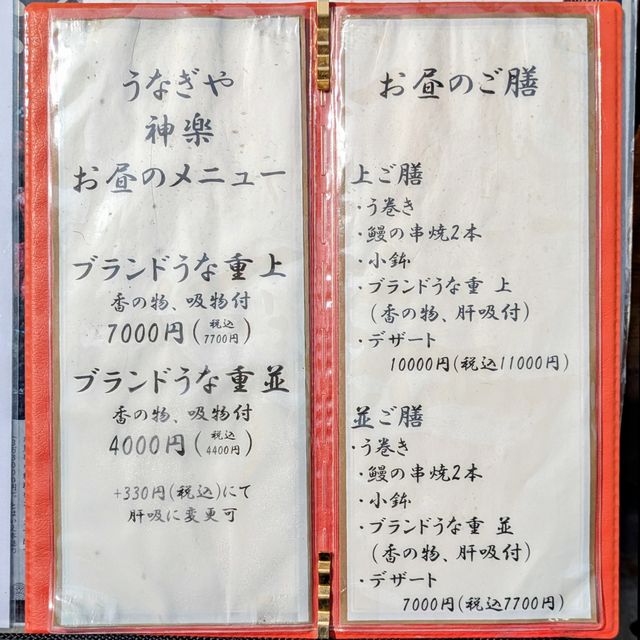 うなぎや
神楽
お昼のメニュー
ブランドうな重 上
香の物、吸物付
7000円(税込7700円)
ブランドうな重 並
香の物、吸物付
4000円(税込4400円)
+330円(税込)にて
肝吸に変更可
お昼のご膳
上ご膳
・う巻き
・鰻の串焼2本
・小鉢
・ブランドうな重 上
(香の物、肝吸付)
・デザート
10000円(税込11000円)
並ご膳
・う巻き
・鰻の串焼2本
・小鉢
・ブランドうな重 並
(香の物、肝吸付)
・デザート
7000円(税込7700円)